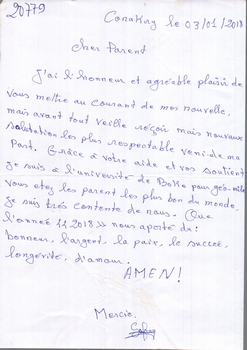 20779
Conakry le 03/01/2018
cher Parent
J'ai l'honneur et agréable plaisir de
vous mettre au courant de mes nouvelle,
mais avant tout veille reçoir mais nouveaux
salutation les plus respectable venu de ma
Part. Grâce à votre aide et vos soutient
je suis à l'université de Boké pour
vous etes les parent les plus bon du monde,
je suis très contente de nous. Que
l'année << 2018 >> nous aporte du:
bonneur, l'argent, la paix, le succée,
longévité, d'amour.
AMEN!
Mercie.